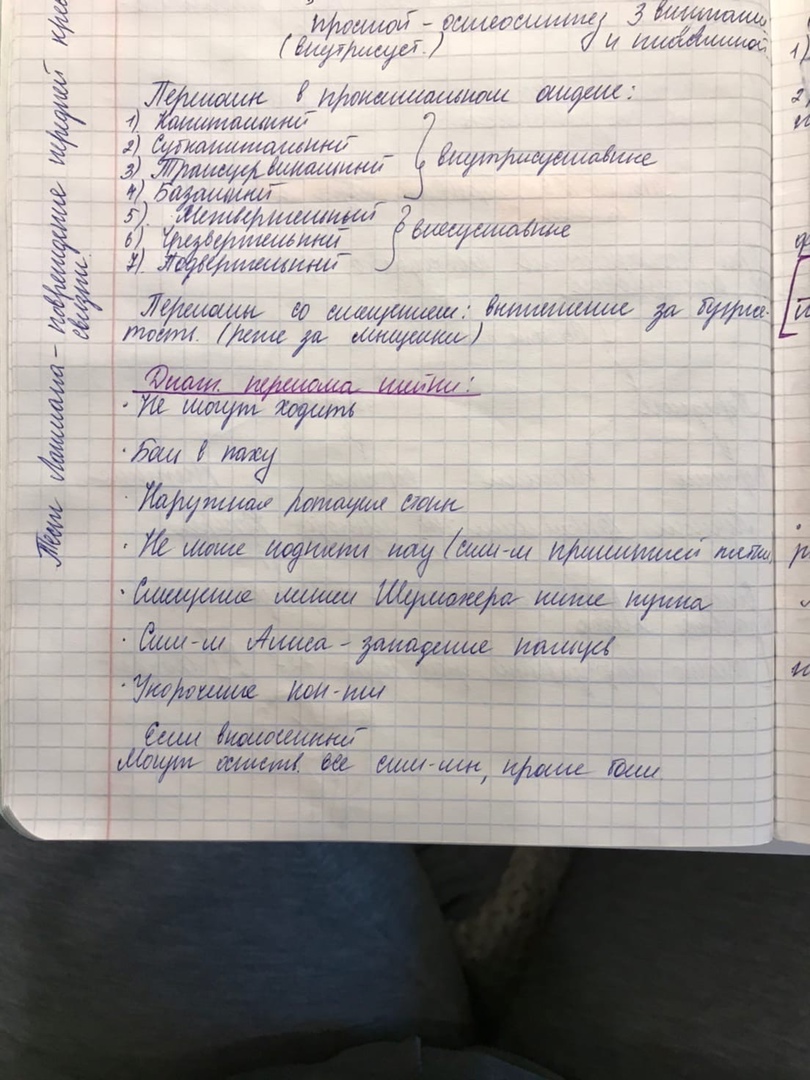 простой - остеосинтез 3 винтами
(внутрисуст.) и пластиной
Перелом в проксимальном отделе:
1) Капитальный
2) Субкапитальный
3) Трансцервикальный
4) Базальный
внутрисуставные
5) Межвертельный
6) Чрезвертельный
7) Подвертельный
внесуставные
Перелом со смещением: вытяжение за бугрис-
тость. (реже за мыщелки)
Диагн. перелома шейки:
· Не могут ходить
· Боли в паху
· Наружная ротация стопы
· Не може поднять ногу (сим-м прилипшей пятки
· Смещение линии Шумахера ниже пупка
· Сим-м Алиса - западение пальцев
· Укорочение кон-ти
Если вколоченный
Могут отсутств. все сим-мы, кроме боли.
Тест Лахмана - повреждение передней крес
связки.